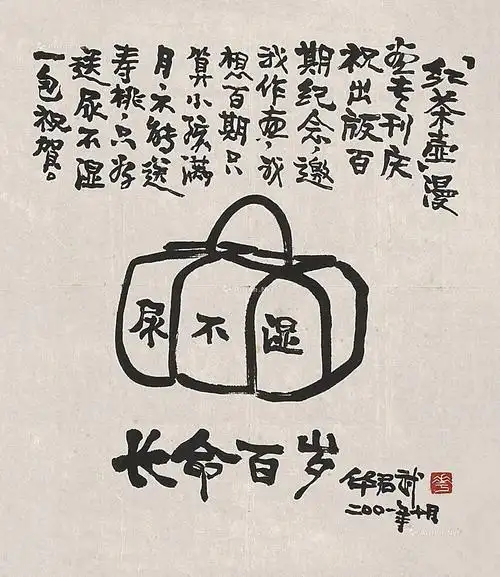 “红茶壶”漫
画专刊庆
祝出版百
期纪念，邀
我作画，我
想百期只
算小孩满
月，不能送
寿桃，只好
送尿不湿
一包祝贺。
尿不湿
长命百岁
华君武
二〇〇一年十月